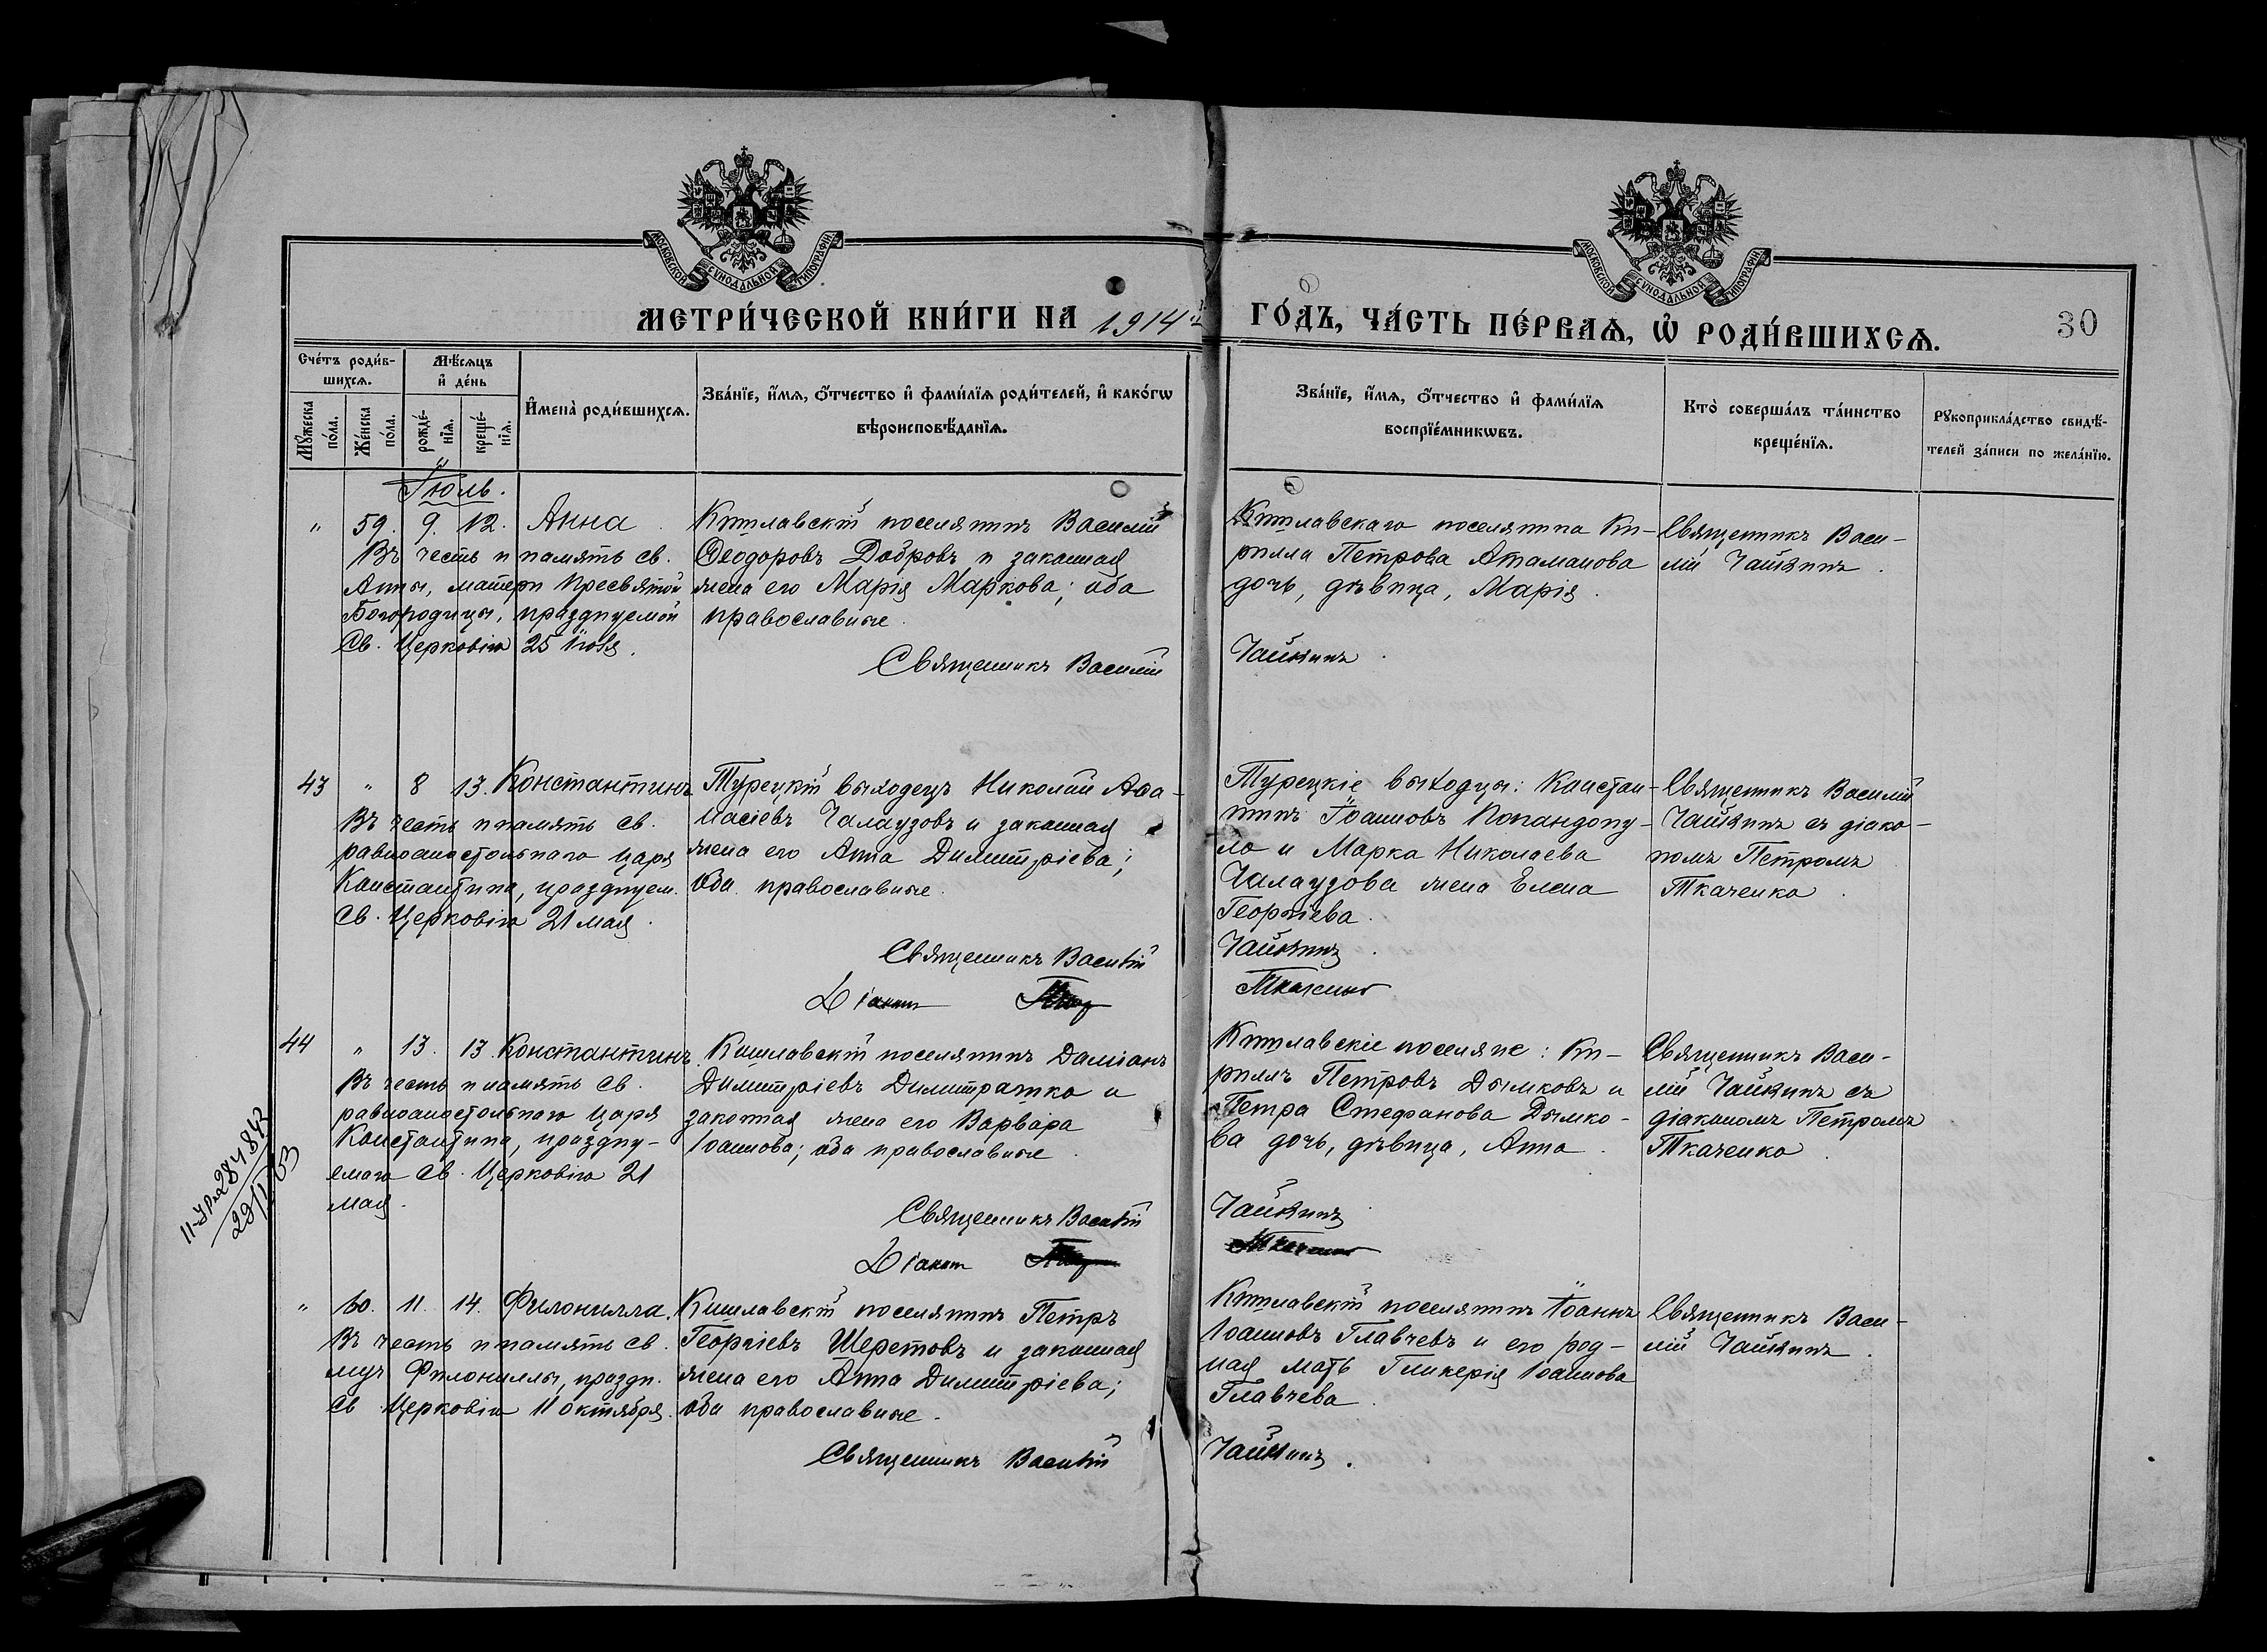 МОСКОВСКОЙ СѴНОДАЛЬНОЙ ТИПОГРАФІИ
МОСКОВСКОЙ СѴНОДАЛЬНОЙ ТИПОГРАФІИ
МЕТРИ́ЧЕСКОЙ КНИ́ГИ НА 1914й
ГО́ДЪ, ЧА́СТЬ ПЕ́РВАѦ, Ѡ РОДИ́ВШИХСѦ.
30
Сче́тъ роди́в-
шихсѧ.
Мѣ́сѧцъ
и҆ де́нь
Мꙋ́жеска
по́ла.
Же́нска
по́ла.
рожде́-
нїѧ.
креще́-
нїѧ.
И҆мена̀ роди́вшихсѧ.
Зва́нїе, и҆́мѧ, ѻ҆́тчество и҆ фами́лїѧ роди́телей, и҆ како́гѡ
вѣроисповѣ́данїѧ.
Зва́нїе, и҆́мѧ, ѻ҆́тчество и҆ фами́лїѧ
воспрїе́мникѡвъ.
Кто̀ соверша́лъ та́инство
креще́нїѧ.
Рꙋкоприкла́дство свидѣ́-
телей за́писи по жела́нїю.
Іюль.
" 59. 9. 12. Анна.
Въ честь и память св.
Анны, матери Пресвятой
Богородицы, празднуемой
Св. Церковію 25 іюля.
Кишлавскій поселянинъ Василій
Ѳеодоровъ Добровъ и законная
жена его Марія Маркова; оба
православные.
Священникъ Василій
Кишлавскаго поселянина Ки-
рилла Петрова Атаманова
дочь, дѣвица, Марія.
Чайкинъ.
Священникъ Васи-
лій Чайкинъ.
43 " 8 13. Константинъ
Въ честь и память св.
равноапостольнаго Царя
Константина, празднуем.
Св. Церковію 21 мая.
Турецкій выходецъ Николай Аѳа-
насіевъ Чалаузовъ и законная
жена его Анна Димитріева;
оба православные.
Священникъ Василій
Діаконъ
Турецкіе выходцы: Констан-
тинъ Іоанновъ Попандопу-
ло и Марка Николаева
Чалаузова жена Елена
Георгіева.
Чайкинъ.
Ткаченко
Священникъ Василій
Чайкинъ съ діако-
номъ Петромъ
Ткаченко.
44 " 13. 13. Константинъ.
Въ честь и память св.
равноапостольнаго Царя
Константина, праздну-
емаго Св. Церковію 21
мая.
Кишлавскій поселянинъ Даміанъ
Димитріевъ Димитрашко и
законная жена его Варвара
Іоаннова; оба православные.
Священникъ Василій
Діаконъ
Кишлавскіе поселяне: Ки-
риллъ Петровъ Дымковъ и
Петра Стефанова Дымко-
ва дочь, дѣвица, Анна.
Чайкинъ
Ткаченко
Священникъ Васи-
лій Чайкинъ съ
діакономъ Петромъ
Ткаченко.
" 60. 11. 14. Филонилла.
Въ честь и память св.
муч Филониллы, праздн.
Св Церковію 11 октября.
Кишлавскій поселянинъ Петръ
Георгіевъ Шеретовъ и законная
жена его Анна Димитріева;
оба православные.
Священникъ Василій
Кишлавскій поселянинъ Іоаннъ
Іоанновъ Главчевъ и его род-
ная мать Гликерія Іоаннова
Главчева.
Чайкинъ.
Священникъ Васи-
лій Чайкинъ.